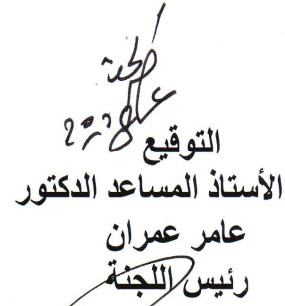 التوقيع
الأستاذ المساعد الدكتور
عامر عمران
رئيس اللجنة